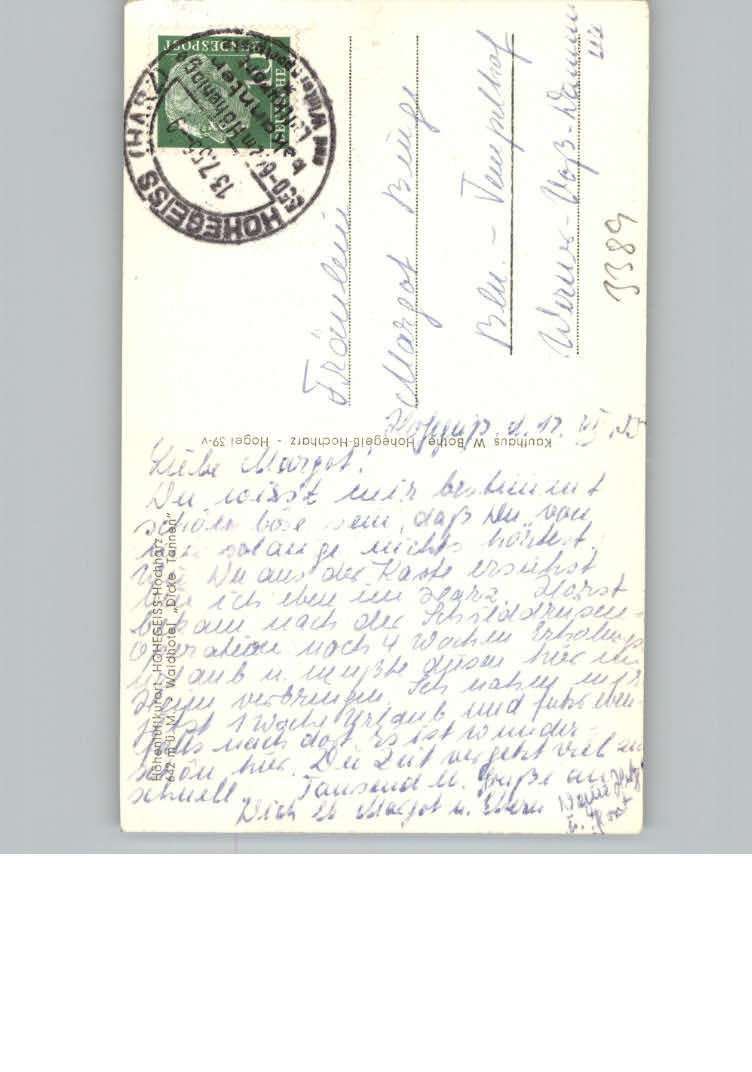 DEUTSCHE BUNDESPOST
HOHEGEISS (HARZ)
13.7.55-9
Fräulein
Margot
Bln. - Tempelhof
Werner-Voß-Damm
3389
Kaufhaus W. Bothe, Hohegeiß-Hochharz - Hogei 39-v
Höhenluftkurort HOHEGEISS-Hochharz
642 m ü. M. - Waldhotel „Dicke Tannen"
d. 12. VII. 55
Liebe Margot!
Du wirst mir bestimmt
schön böse sein, daß Du von
mir solange nichts hörtest.
Wie Du aus der Karte ersiehst
bin ich eben im Harz. Horst
bekam nach der Schilddrüsen-
operation noch 4 Wochen Erholungs-
urlaub u. mußte diesen hier im
Heim verbringen. Ich nahm mir
jetzt 1 Woche Urlaub und fuhr eben-
falls nach dort. Es ist wunder-
schön hier. Die Zeit vergeht viel zu
schnell. Tausend u. Grüße an
Dich lb. Margot u. Eltern
u. Horst